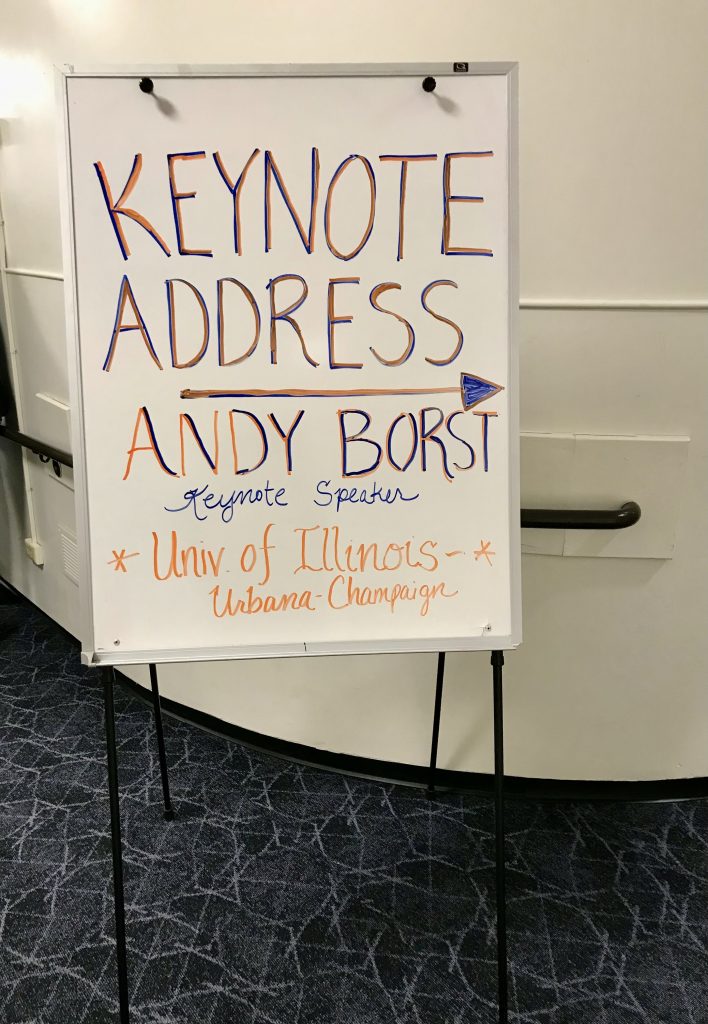 KEYNOTE
ADDRESS
ANDY BORST
Keynote Speaker
* Univ. of Illinois - *
Urbana-Champaign